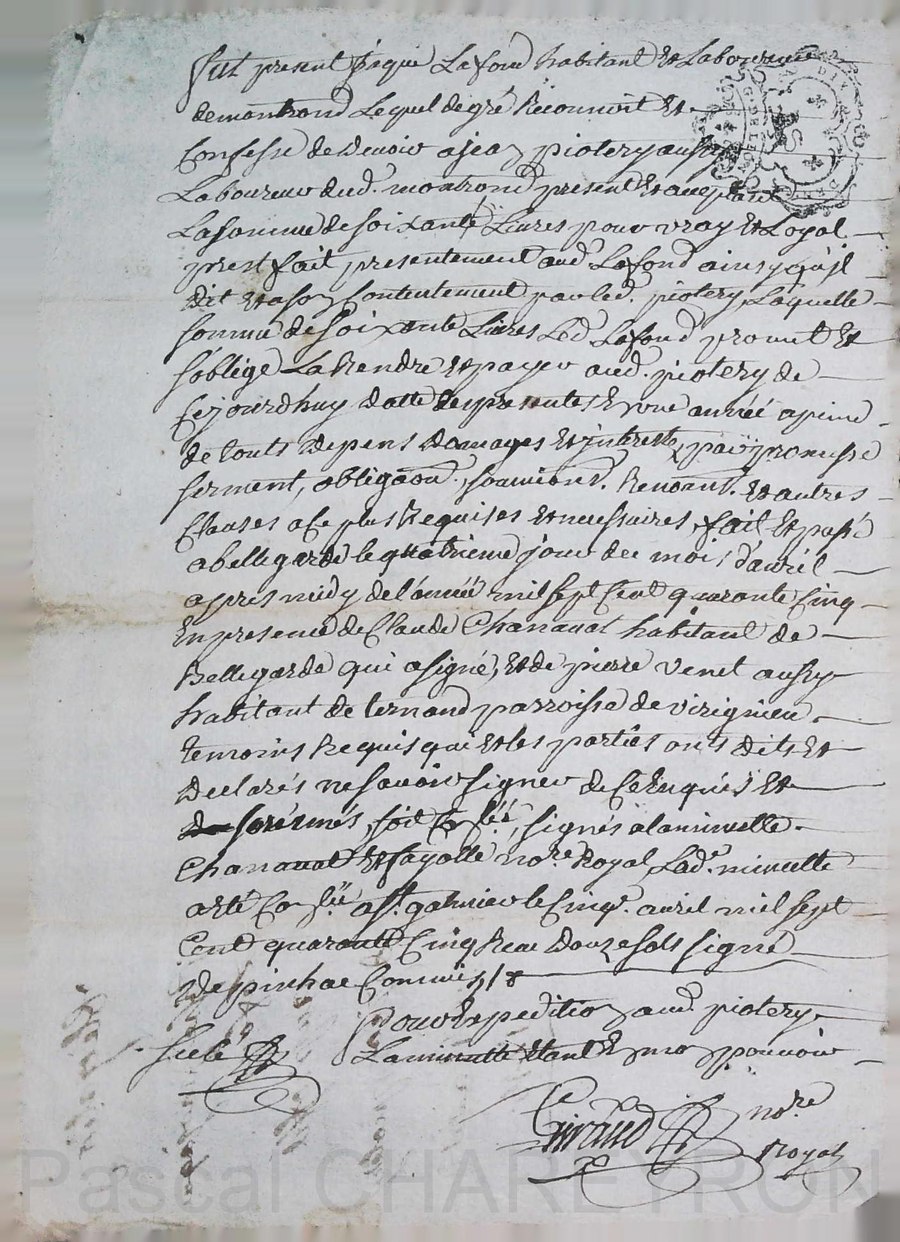 fut present Lafond habitant Et Laboureur
demontrond Lequel degré Reconnoit Et
Confesse de Devoir ajean piotery aussy
Laboureur dud. montrond present Et aceptant
La somme de soixante Livres pour vray Et Loyal
prest fait presentement aud. Lafond ainsy qu'jl
dit Et a son Contentement par led. piotery Laquelle
somme de soixante Livres Led. Lafond promet Et
s'oblige La Rendre Et payer aud. piotery de
Cejourdhuy datte des presentes En une année apeine
de touts depens domages Et jnterests, par promesse
serment, obligaon. soumions. Renons. Et autres
Clauses a ce plus Requises Et necessaires, fait Et passé
abellegarde le quatrieme jour du mois d'avril
appres midy de l'année mil sept Cent quarante Cinq
En presence de Claude Chanavat habitant de
Bellegarde qui a signé, Et de pierre venet aussy
habitant de parroisse de virignieu
temoins Requis qui Et les parties onts dits Et
Declarés ne savoir signer de Ce Enquis Et
signés alaminutte
Chanavat Et fayolle nore. Royal Lad. minutte
a eté a st. galmier le Cinqe. avril mil sept
Cent quarante Cinq Reçu douze sols signé
De pinhac Commis
Pour Expedition aud. piotery
Laminutte Etant En mon pouvoir
Scelé
Giraud nore
Royal
Pascal CHAREYRON